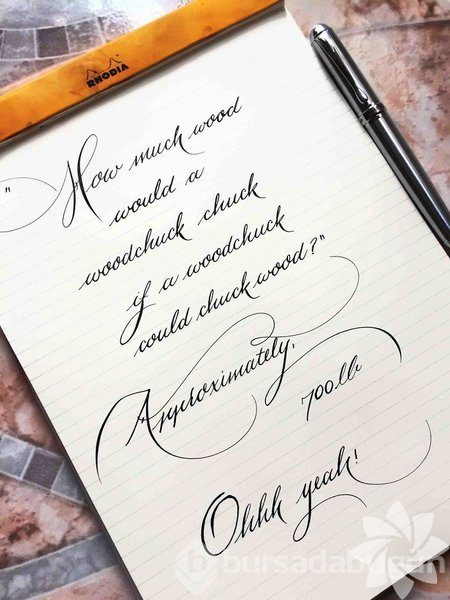 RHODIA
"How much wood
would a
woodchuck chuck
if a woodchuck
could chuck wood?"
Approximately,
700lb
Ohhh yeah!
bursadabugün